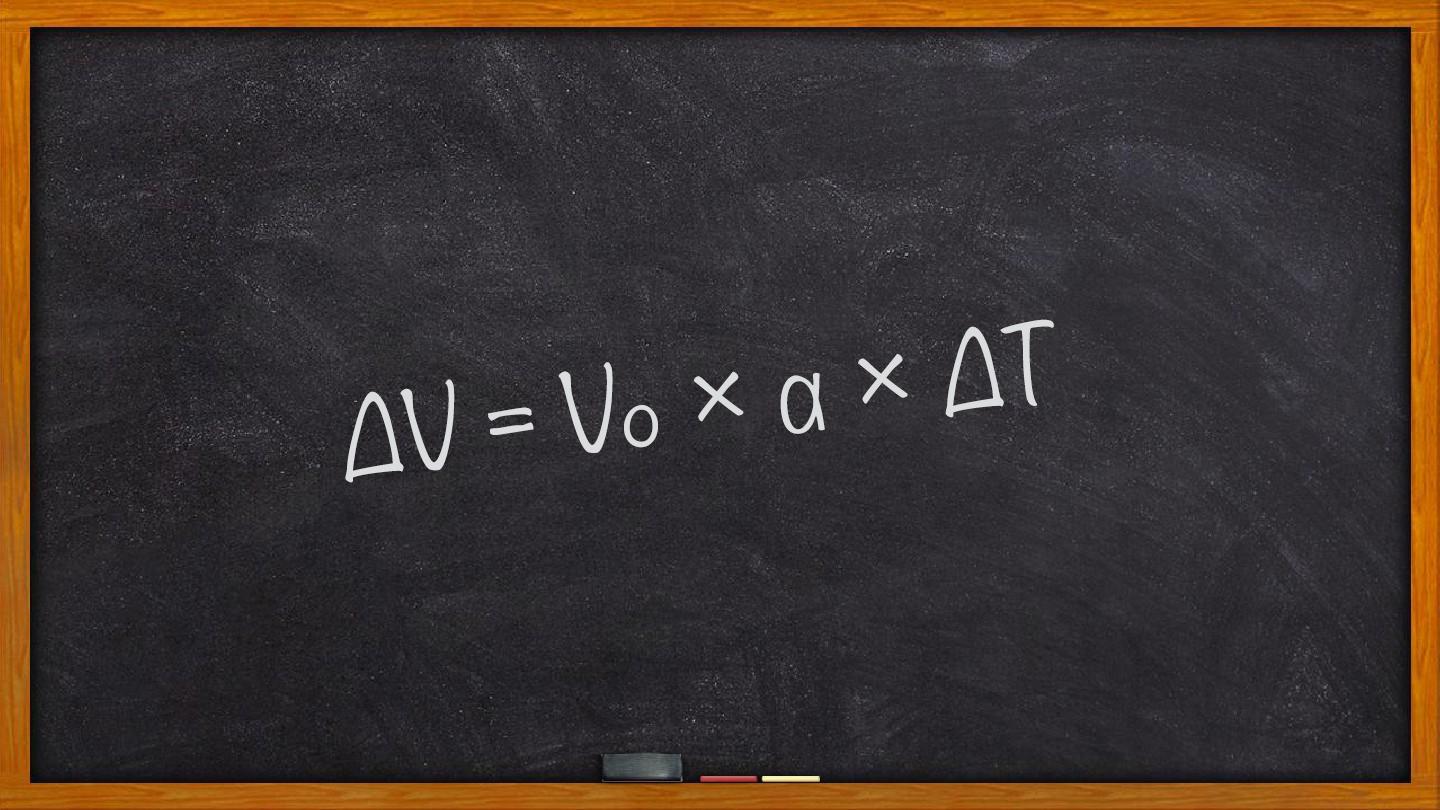 ΔV = Vo × a × ΔT